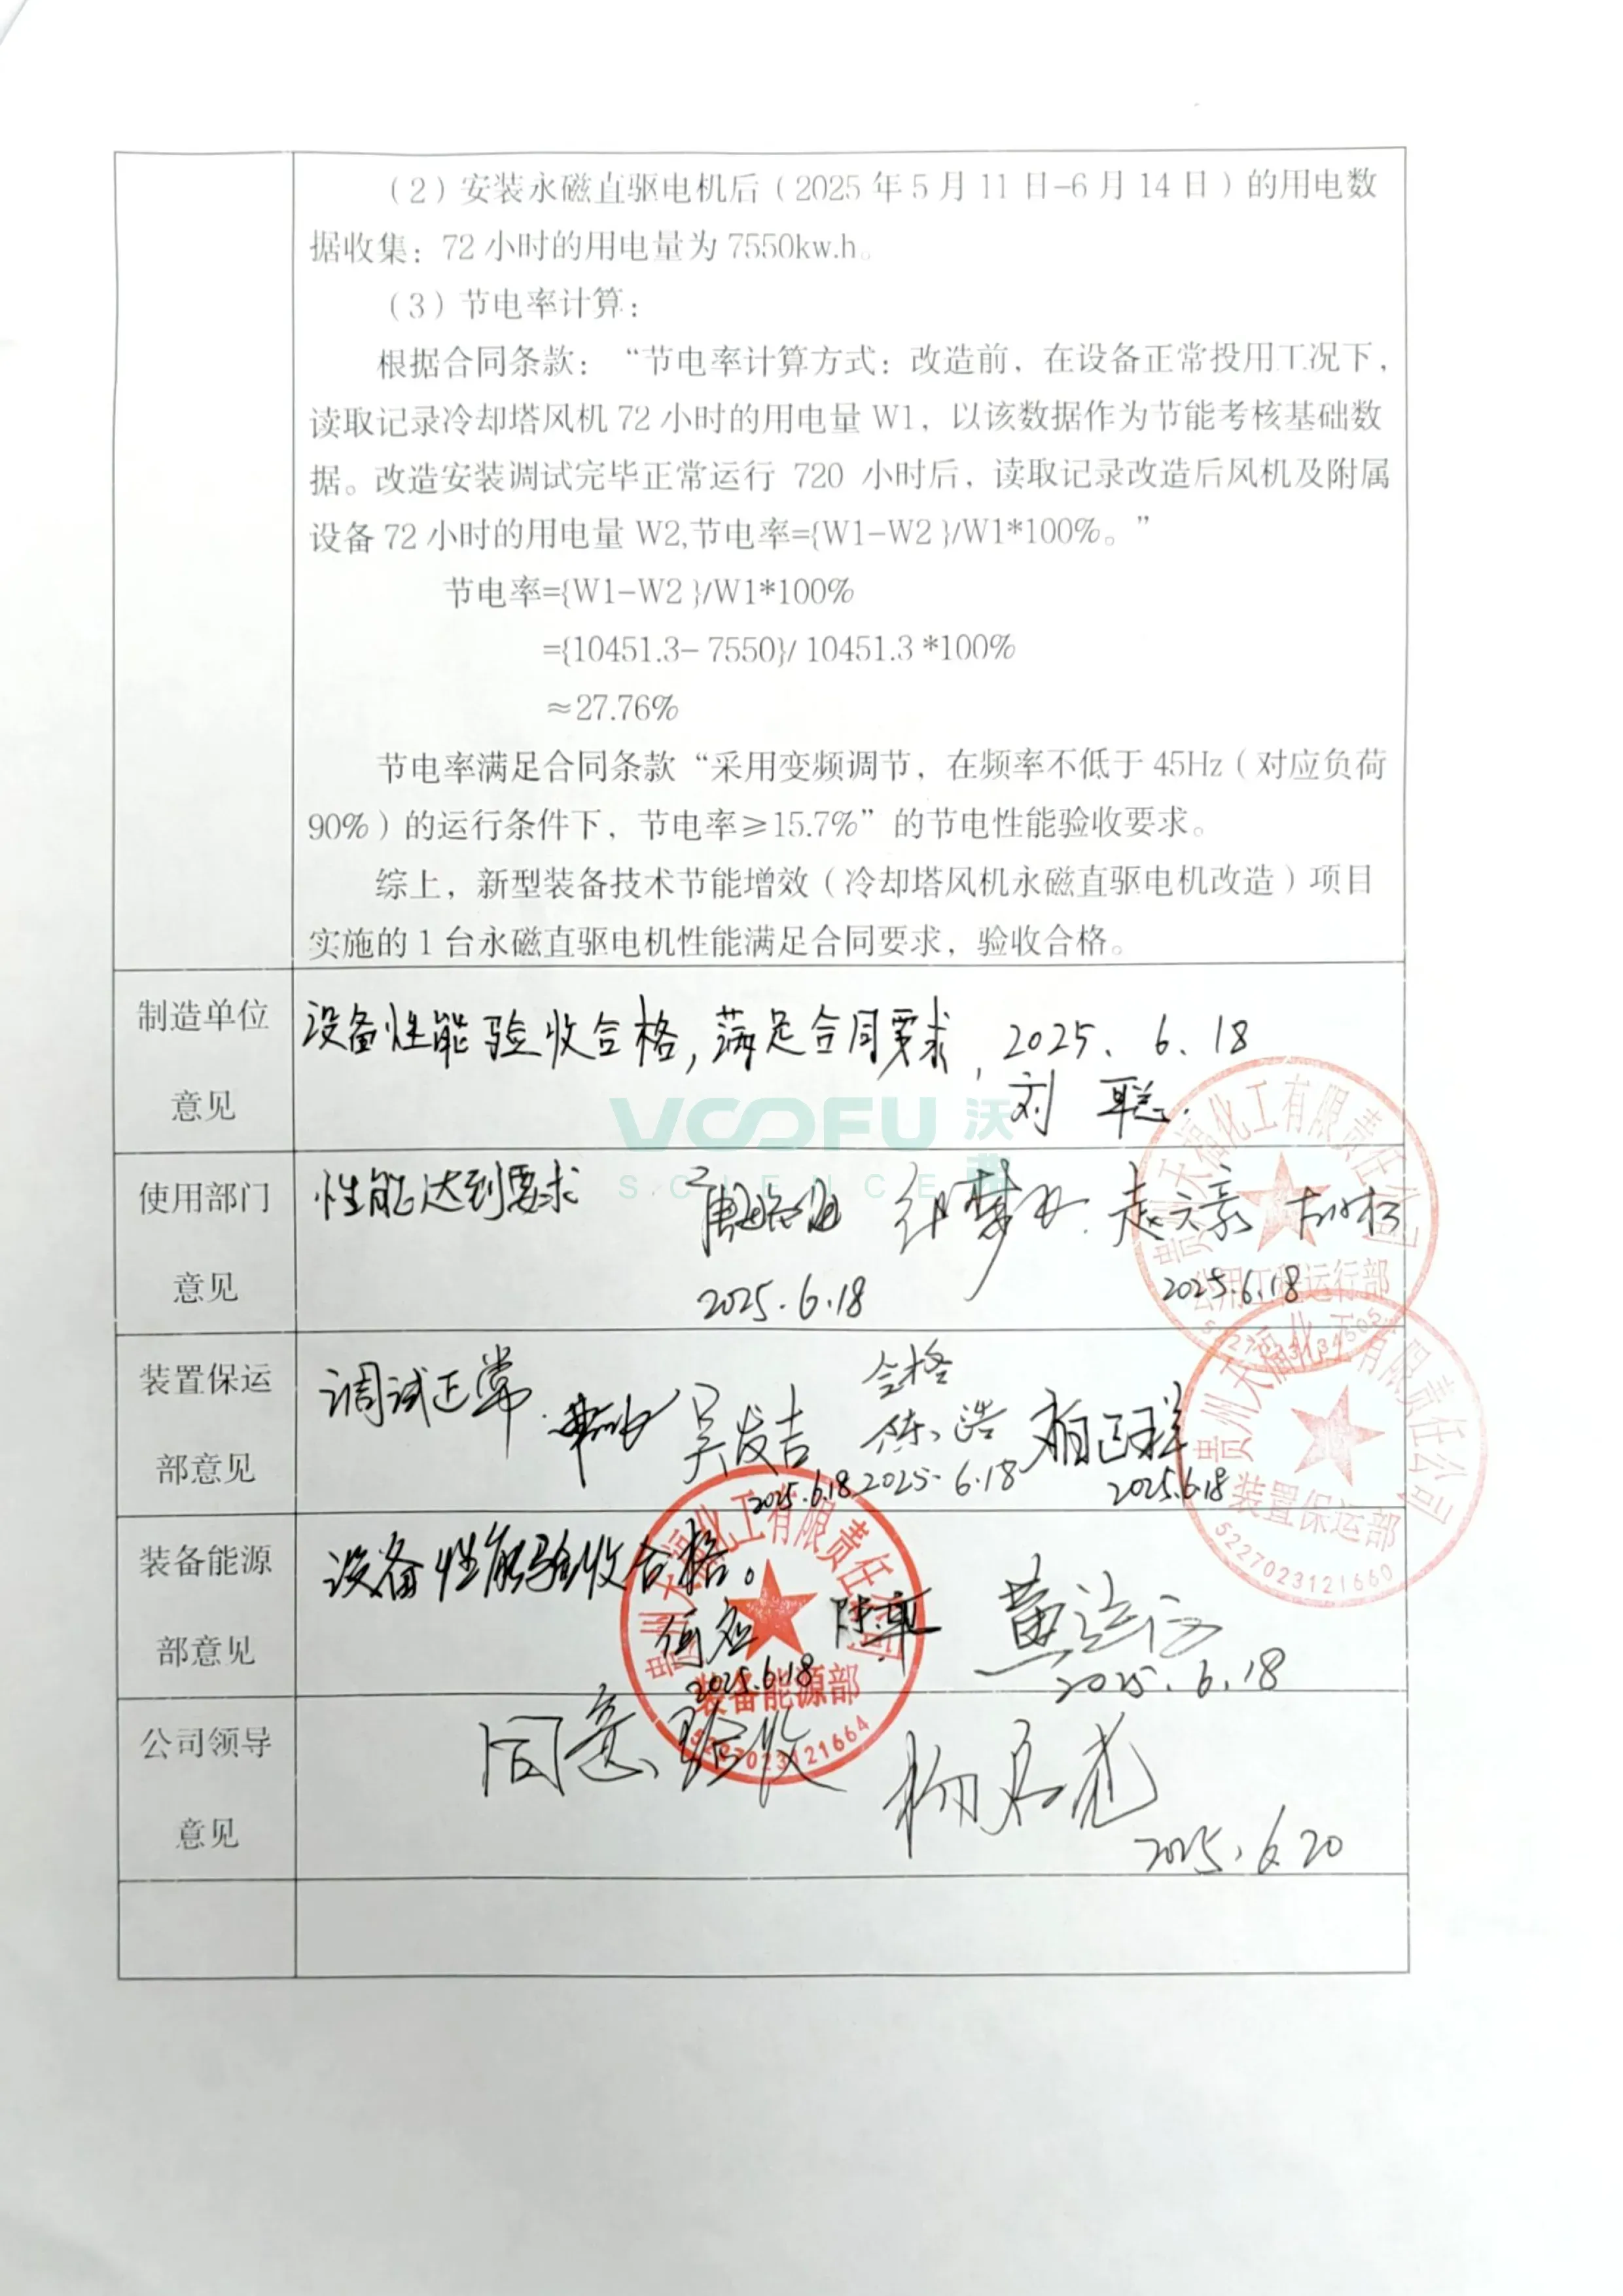 （2）安装永磁直驱电机后（2025 年 5 月 11 日-6 月 14 日）的用电数
据收集：72 小时的用电量为 7550kw.h。
（3）节电率计算：
根据合同条款：“节电率计算方式：改造前，在设备正常投用工况下，
读取记录冷却塔风机 72 小时的用电量 W1，以该数据作为节能考核基础数
据。改造安装调试完毕正常运行 720 小时后，读取记录改造后风机及附属
设备 72 小时的用电量 W2,节电率={W1-W2 }/W1*100%。”
节电率={W1-W2 }/W1*100%
={10451.3- 7550}/ 10451.3 *100%
≈27.76%
节电率满足合同条款“采用变频调节，在频率不低于 45Hz（对应负荷
90%）的运行条件下，节电率≥15.7%”的节电性能验收要求。
综上，新型装备技术节能增效（冷却塔风机永磁直驱电机改造）项目
实施的 1 台永磁直驱电机性能满足合同要求，验收合格。
制造单位
意见
设备性能验收合格，满足合同要求，2025、6、18
刘聪
VOOFU 沃
SCIENCE
使用部门
意见
性能达到要求
2025.6.18
2025.6.18
贵州天福化工有限责任公司
公用工程运行部
装置保运
部意见
调试正常
吴发吉
2025.6.18
合格
陈浩
2025.6.18
2025.6.18
贵州天福化工有限责任公司
装置保运部
5227023121660
装备能源
部意见
设备性能验收合格。
2025.6.18
2025.6.18
贵州天福化工有限责任公司
装备能源部
5227023121664
公司领导
意见
同意验收
2025.6.20